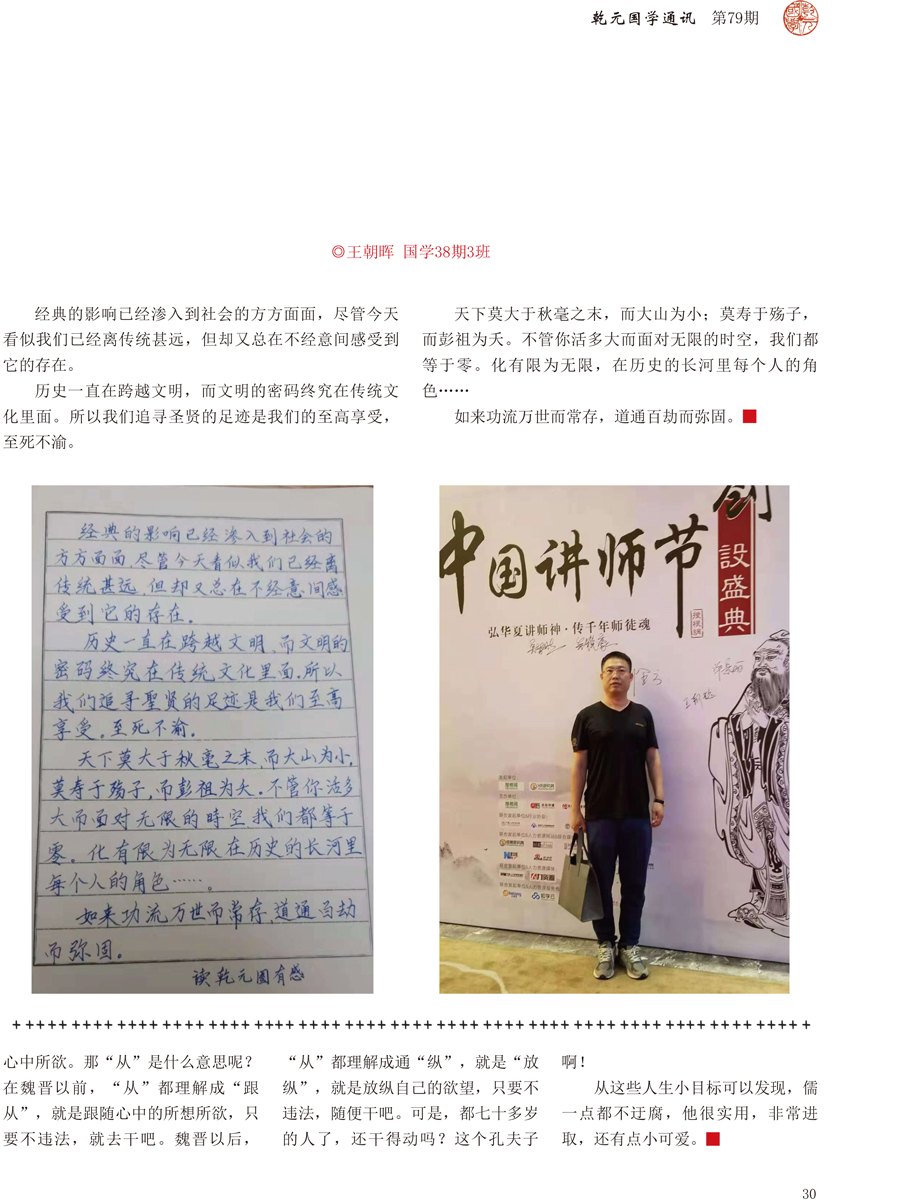 乾元国学通讯 第79期
◎王朝晖 国学38期3班
经典的影响已经渗入到社会的方方面面，尽管今天
看似我们已经离传统甚远，但却又总在不经意间感受到
它的存在。
历史一直在跨越文明，而文明的密码终究在传统文
化里面。所以我们追寻圣贤的足迹是我们的至高享受，
至死不渝。
天下莫大于秋毫之末，而大山为小；莫寿于殇子，
而彭祖为夭。不管你活多大而面对无限的时空，我们都
等于零。化有限为无限，在历史的长河里每个人的角
色……
如来功流万世而常存，道通百劫而弥固。
经典的影响已经渗入到社会的
方方面面，尽管今天看似我们已经离
传统甚远，但却又总在不经意间感
受到它的存在。
历史一直在跨越文明，而文明的
密码终究在传统文化里面，所以
我们追寻聖贤的足迹是我们至高
享受。至死不渝。
天下莫大于秋毫之末，而大山为小，
莫寿于殇子，而彭祖为夭。不管你活多
大而面对无限的時空，我们都等于
零。化有限为无限在历史的长河里
每个人的角色……。
如来功流万世而常存，道通百劫
而弥固。
读乾元国有感
中国讲师节
创
設盛典
弘华夏讲师神·传千年师徒魂
心中所欲。那“从”是什么意思呢？
在魏晋以前，“从”都理解成“跟
从”，就是跟随心中的所想所欲，只
要不违法，就去干吧。魏晋以后，
“从”都理解成通“纵”，就是“放
纵”，就是放纵自己的欲望，只要不
违法，随便干吧。可是，都七十多岁
的人了，还干得动吗？这个孔夫子
啊！
从这些人生小目标可以发现，儒
一点都不迂腐，他很实用，非常进
取，还有点小可爱。
30